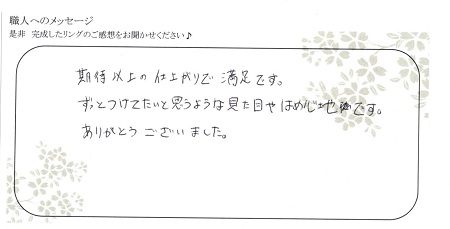 職人へのメッセージ
是非 完成したリングのご感想をお聞かせください♪
期待以上の仕上がりで 満足です。
ずっとつけてたいと思うような見た目やはめ心地です。
ありがとうございました。